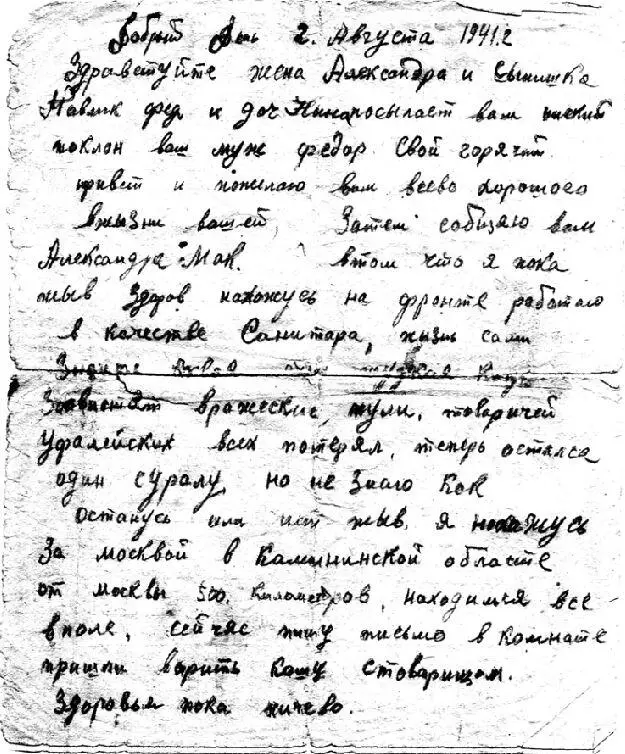 Добрый день 2. Августа 1941.г
Здравстуйте жена Александра и сынишка
Павлик фед и доч Нина посылает вам ниский
поклон ваш муж федор. Свой горячий
привет и пожелаю вам всево хорошово
вжызни вашей, Затем сообщяю вам
Александра Мак. втом что я пока
жыв Здоров нахожусь на фронте работаю
в качестве Санитара, жызнь сами
Знаите какая
вражеские пули. товаричей
Уфалейских всех потерял, теперь остался
один суралу, но не Знаю Как
Останусь или нет жыв. я нахожусь
За москвой в Калининской областе
от москвы 500. километров, находимся все
вполе, сейчяс пишу письмо в комнате
пришли варить кашу стоварищом.
Здоровьем пока ничево.